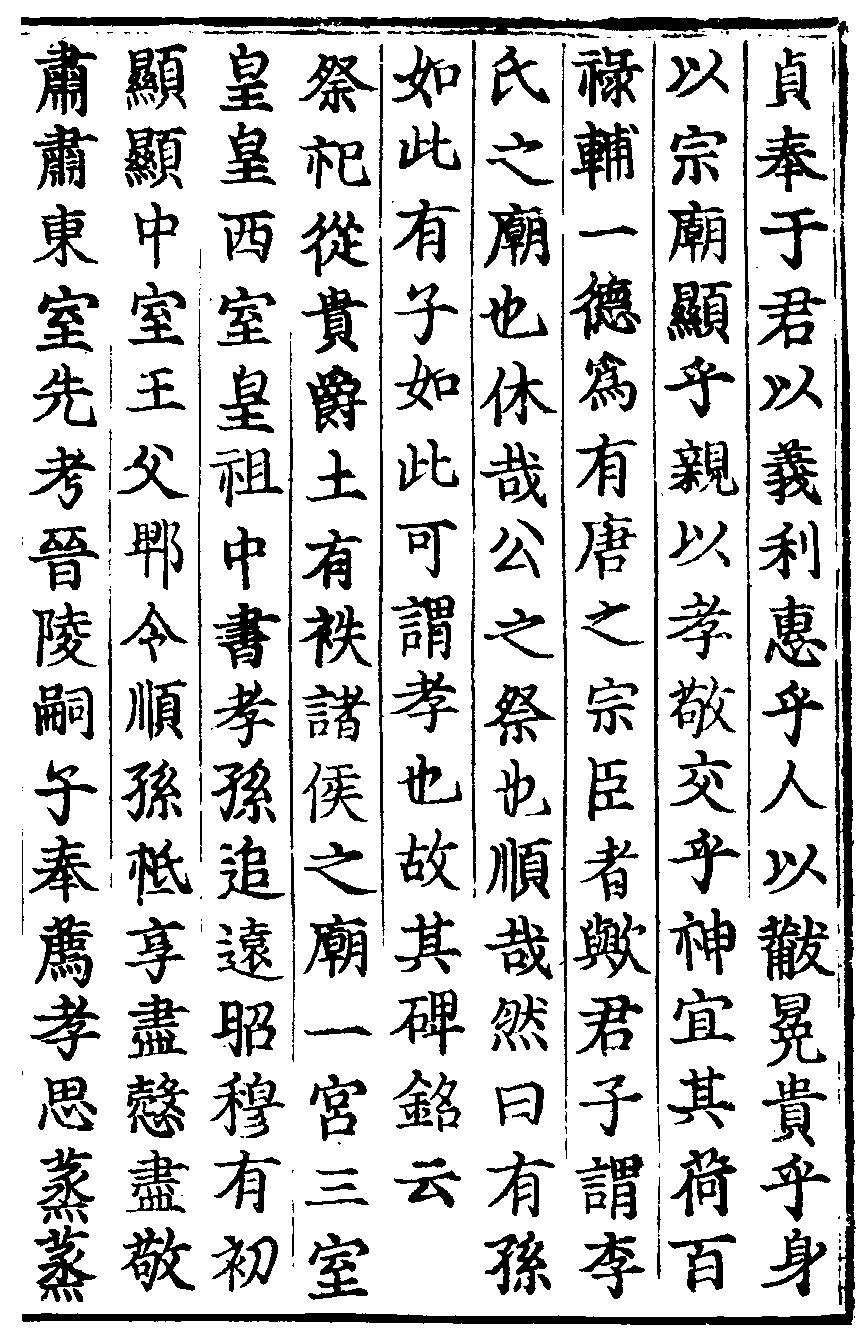 貞奉于君以義利惠乎人以黻冕貴乎身
以宗廟顯乎親以孝敬交乎神宜其荷百
祿輔一德爲有唐之宗臣者歟君子謂李
氏之廟也休哉公之祭也順哉然曰有孫
如此有子如此可謂孝也故其碑銘云
祭祀從貴爵土有袟諸侯之廟一宮三室
皇皇西室皇祖中書孝孫追遠昭穆有初
顯顯中室王父鄲令順孫祗享盡慤盡敬
肅肅東室先考晉陵嗣子奉薦孝思蒸蒸